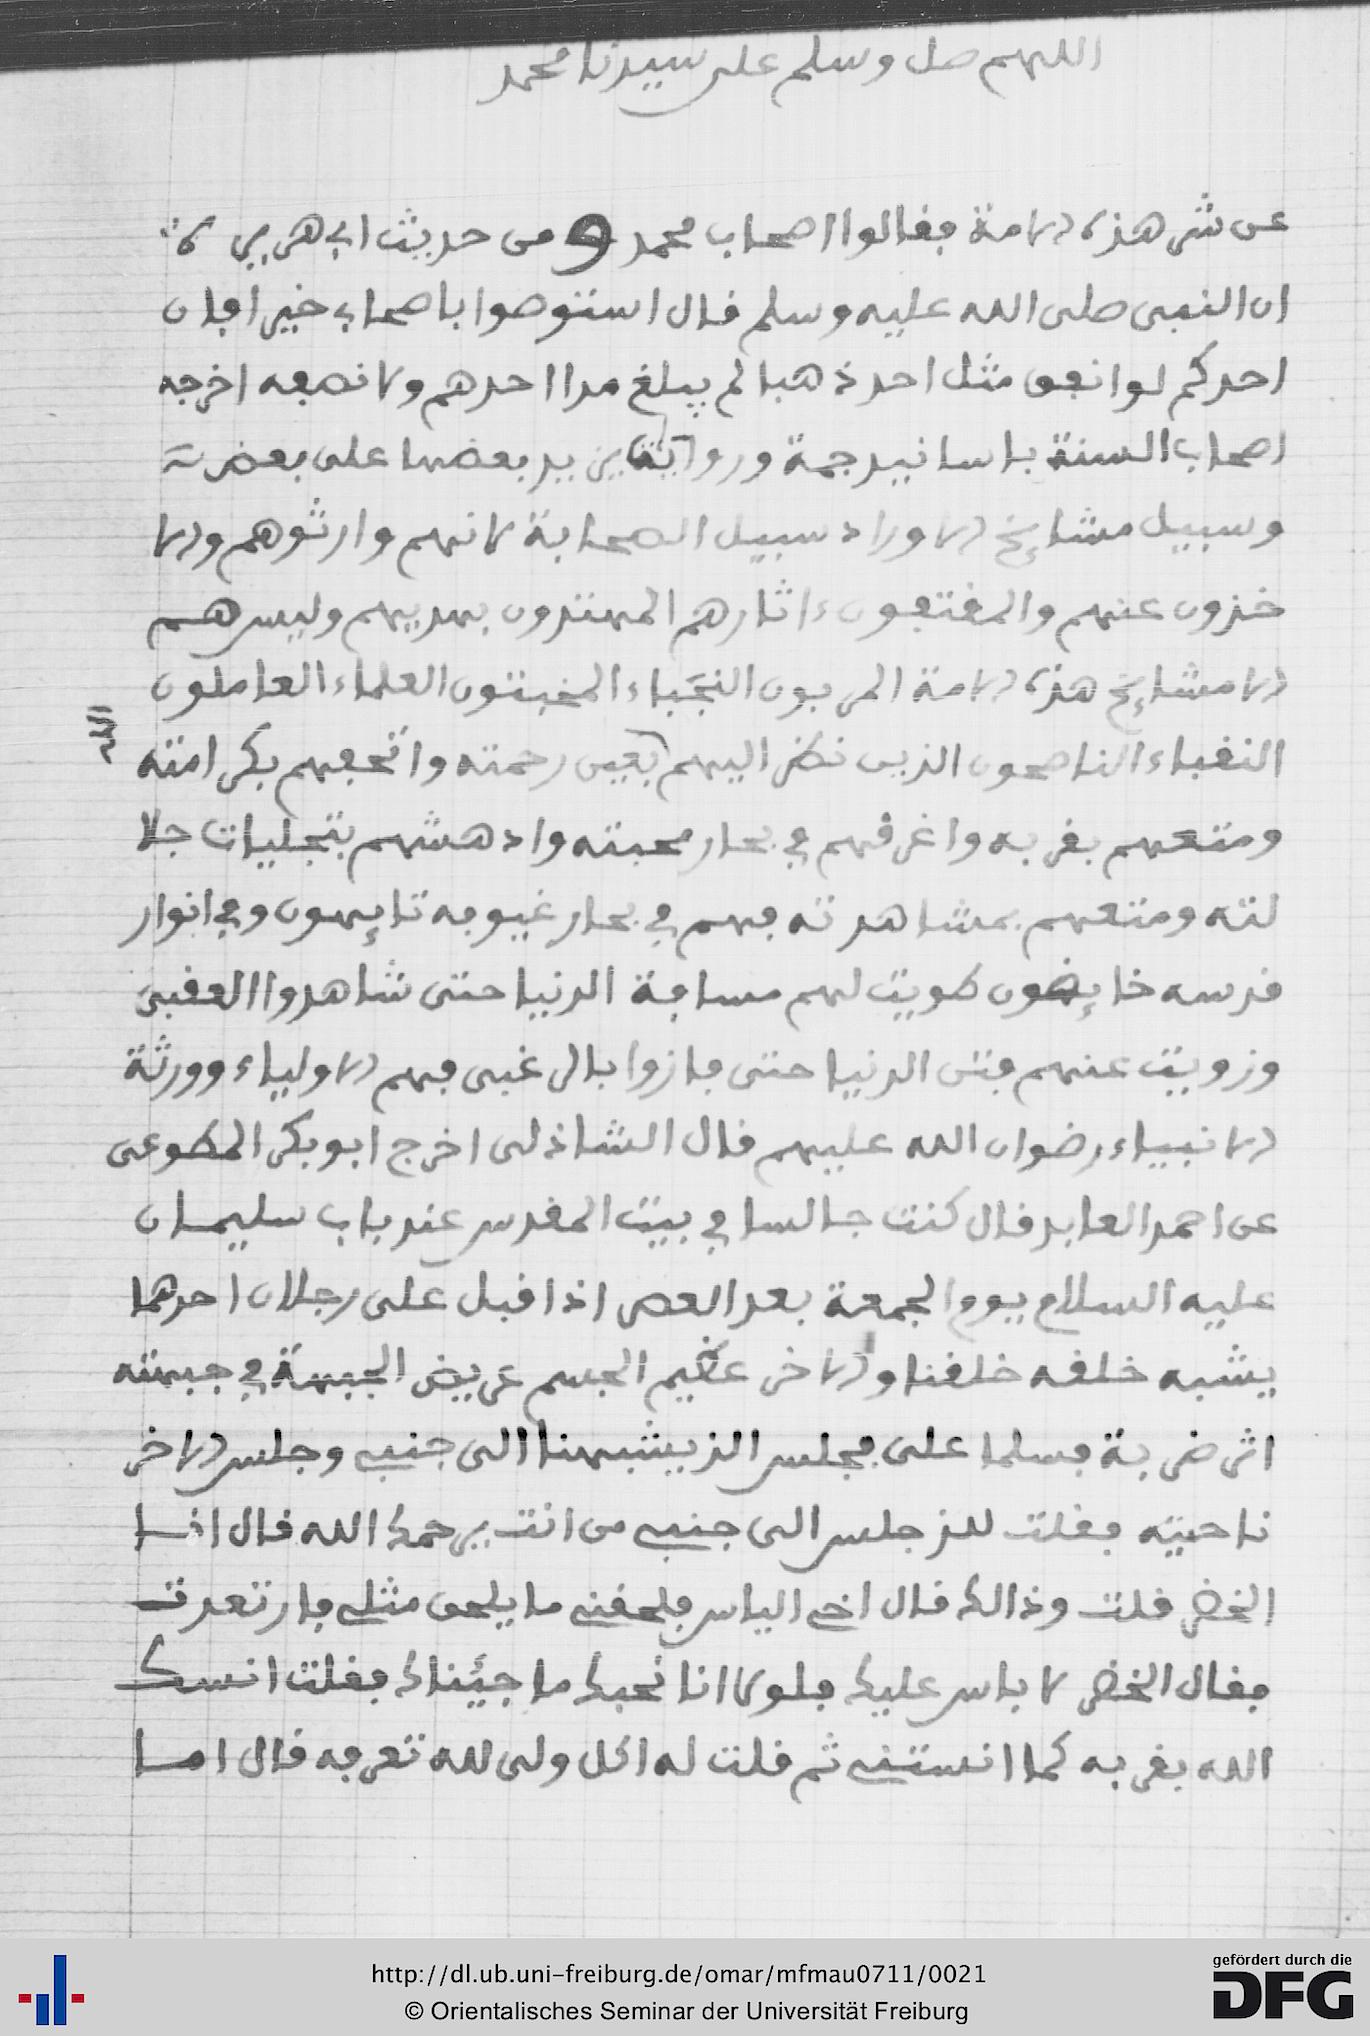 اللهم صل وسلم على سيدنا محمد
عن شر هذه الامة فقالوا اصحاب محمد و من حديث ابي هريرة
ان النبي صلى الله عليه وسلم قال استوصوا باصحابي خيرا فان
احدكم لو انفق مثل احد ذهبا لم يبلغ مدا احدهم ولا نصفه اخرجه
اصحاب السنة باسانيد جمة ورواية يزيد بعضها على بعض
وسبيل مشايخ الاوراد سبيل الصحابة لانهم وارثوهم والا
خذون عنهم والمقتفون ءاثارهم المهتدون بهديهم وليس هم
الا مشايخ هذه الامة المربون النجباء المخبتون العلماء العاملون
النقباء الناصحون الذين نظر اليهم بعين رحمته واتحفهم بكرامته
الله
ومتعهم بقربه واغرقهم في بحار محبته وادهشهم بتجليات جلا
لته ومتعهم بمشاهدته فهم في بحار غيوبه تايهون وفي انوار
قدسه خايضون طويت لهم مسافة الدنيا حتى شاهدوا العقبى
وزويت عنهم فتن الدنيا حتى فازوا بالرغبى فهم الاولياء وورثة
الانبياء رضوان الله عليهم قال الشاذلى اخرج ابو بكر المطوعى
عن احمد العابد قال كنت جالسا في بيت المقدس عند باب سليمان
عليه السلام يوم الجمعة بعد العصر اذا قبل على رجلان احدهما
يشبه خلقه خلقنا والاخر عظيم الجسم عريض الجبهة في جبهته
اثر ضربة فسلما على فجلس الذ يشبهنا الى جنبي وجلس الاخر
ناحيته فقلت للذ جلس الى جنبي من انت يرحمك الله قال انا
الخضر قلت وذالك قال اخي الياس فلحقني ما يلحق مثلي فارتعدت
فقال الخضر لا باس عليك فلولا انا نحبك ما جيئناك فقلت انسك
الله بقربه كما انستني ثم قلت له اكل ولى لله تعرفه قال اما
http://dl.ub.uni-freiburg.de/omar/mfmau0711/0021
© Orientalisches Seminar der Universität Freiburg
gefördert durch die
DFG